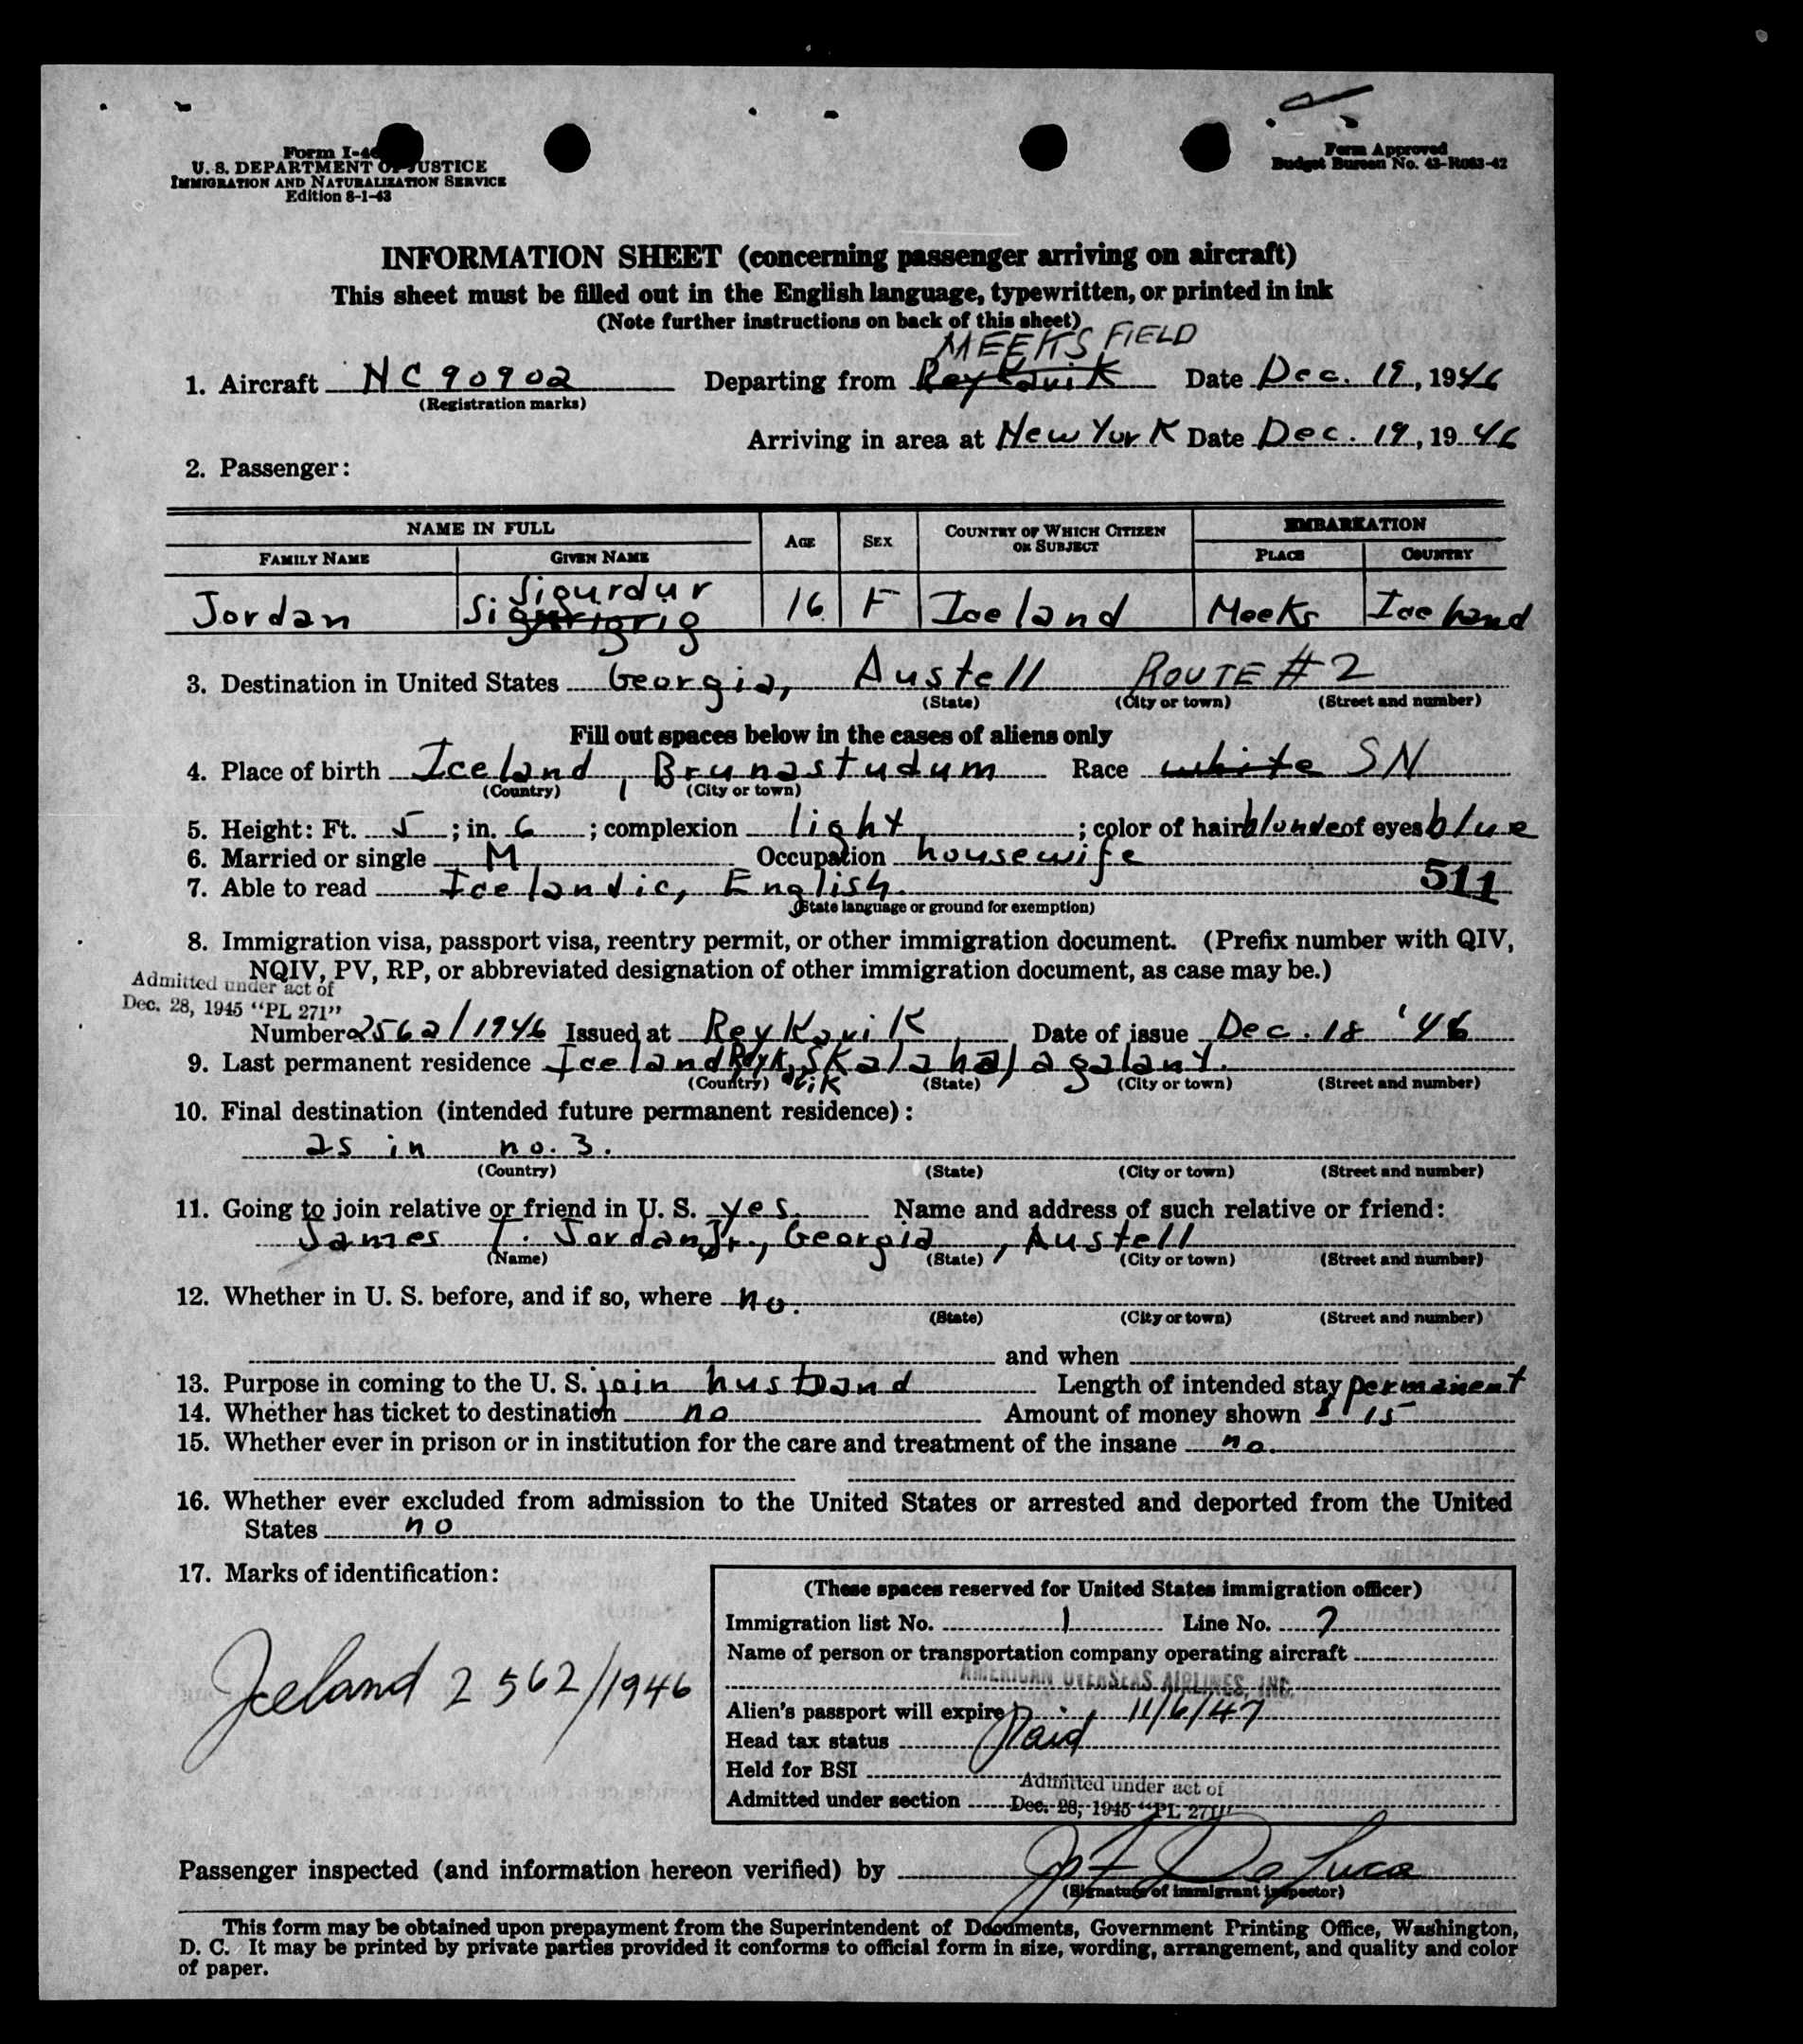 Form I-46
U. S. DEPARTMENT OF JUSTICE
IMMIGRATION AND NATURALIZATION SERVICE
Edition 8-1-43
Form Approved
Budget Bureau No. 43-R063-42
INFORMATION SHEET (concerning passenger arriving on aircraft)
This sheet must be filled out in the English language, typewritten, or printed in ink
(Note further instructions on back of this sheet)
MEEKS FIELD
1. Aircraft NC90902 Departing from Reykavik Date Dec. 19, 1946
(Registration marks)
Arriving in area at New York Date Dec. 19, 19 46
2. Passenger:
NAME IN FULL AGE SEX COUNTRY OF WHICH CITIZEN OR SUBJECT EMBARKATION
FAMILY NAME GIVEN NAME PLACE COUNTRY
Sigurdur
Jordan 16 F Iceland Meeks Iceland
3. Destination in United States Georgia, Austell ROUTE #2
(State) (City or town) (Street and number)
Fill out spaces below in the cases of aliens only
4. Place of birth Iceland, Brunastudum Race white SN
(Country) (City or town)
5. Height: Ft. 5; in. 6; complexion light; color of hair blonde of eyes blue
6. Married or single M Occupation housewife
7. Able to read Icelandic, English. 511
(State language or ground for exemption)
8. Immigration visa, passport visa, reentry permit, or other immigration document. (Prefix number with QIV,
NQIV, PV, RP, or abbreviated designation of other immigration document, as case may be.)
Admitted under act of
Dec. 28, 1945 "PL 271"
Number 2562/1946 Issued at Reykavik Date of issue Dec. 18 '46
9. Last permanent residence Iceland
(Country) (State) (City or town) (Street and number)
10. Final destination (intended future permanent residence):
as in no. 3.
(Country) (State) (City or town) (Street and number)
11. Going to join relative or friend in U. S. yes. Name and address of such relative or friend:
James T. Jordan Jr., Georgia, Austell
(Name) (State) (City or town) (Street and number)
12. Whether in U. S. before, and if so, where no.
(State) (City or town) (Street and number)
and when
13. Purpose in coming to the U. S. join husband Length of intended stay permanent
14. Whether has ticket to destination no Amount of money shown $ 15
15. Whether ever in prison or in institution for the care and treatment of the insane no.
16. Whether ever excluded from admission to the United States or arrested and deported from the United
States no
17. Marks of identification:
Iceland 2562/1946
(These spaces reserved for United States immigration officer)
Immigration list No. 1 Line No. 7
Name of person or transportation company operating aircraft
AMERICAN OVERSEAS AIRLINES, INC.
Alien's passport will expire 11/6/47
Head tax status Paid
Held for BSI
Admitted under act of
Admitted under section Dec. 28, 1945 "PL 271"
Passenger inspected (and information hereon verified) by
(Signature of immigrant inspector)
This form may be obtained upon prepayment from the Superintendent of Documents, Government Printing Office, Washington,
D. C. It may be printed by private parties provided it conforms to official form in size, wording, arrangement, and quality and color
of paper.